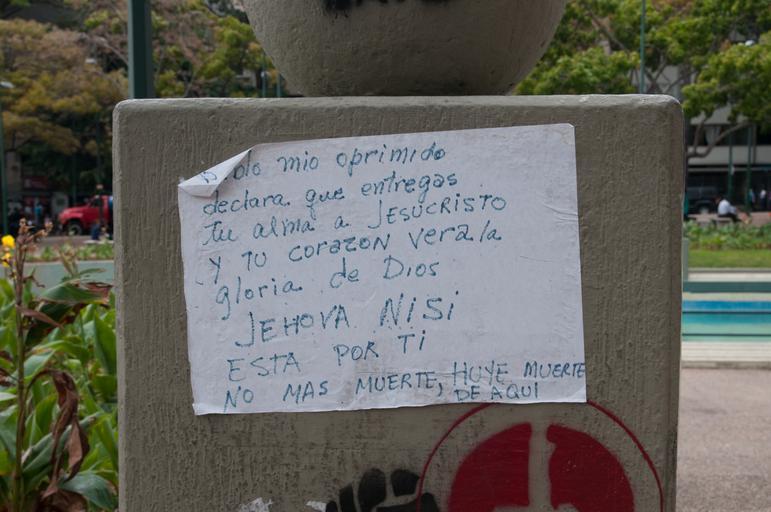 mio oprimido
declara que entregas
tu alma a JESUCRISTO
y TU corazon verala
gloria de Dios
JEHOVA NiSi
ESTA POR Ti
NO MAS MUERTE, HUYE MUERTE
DE AQUI